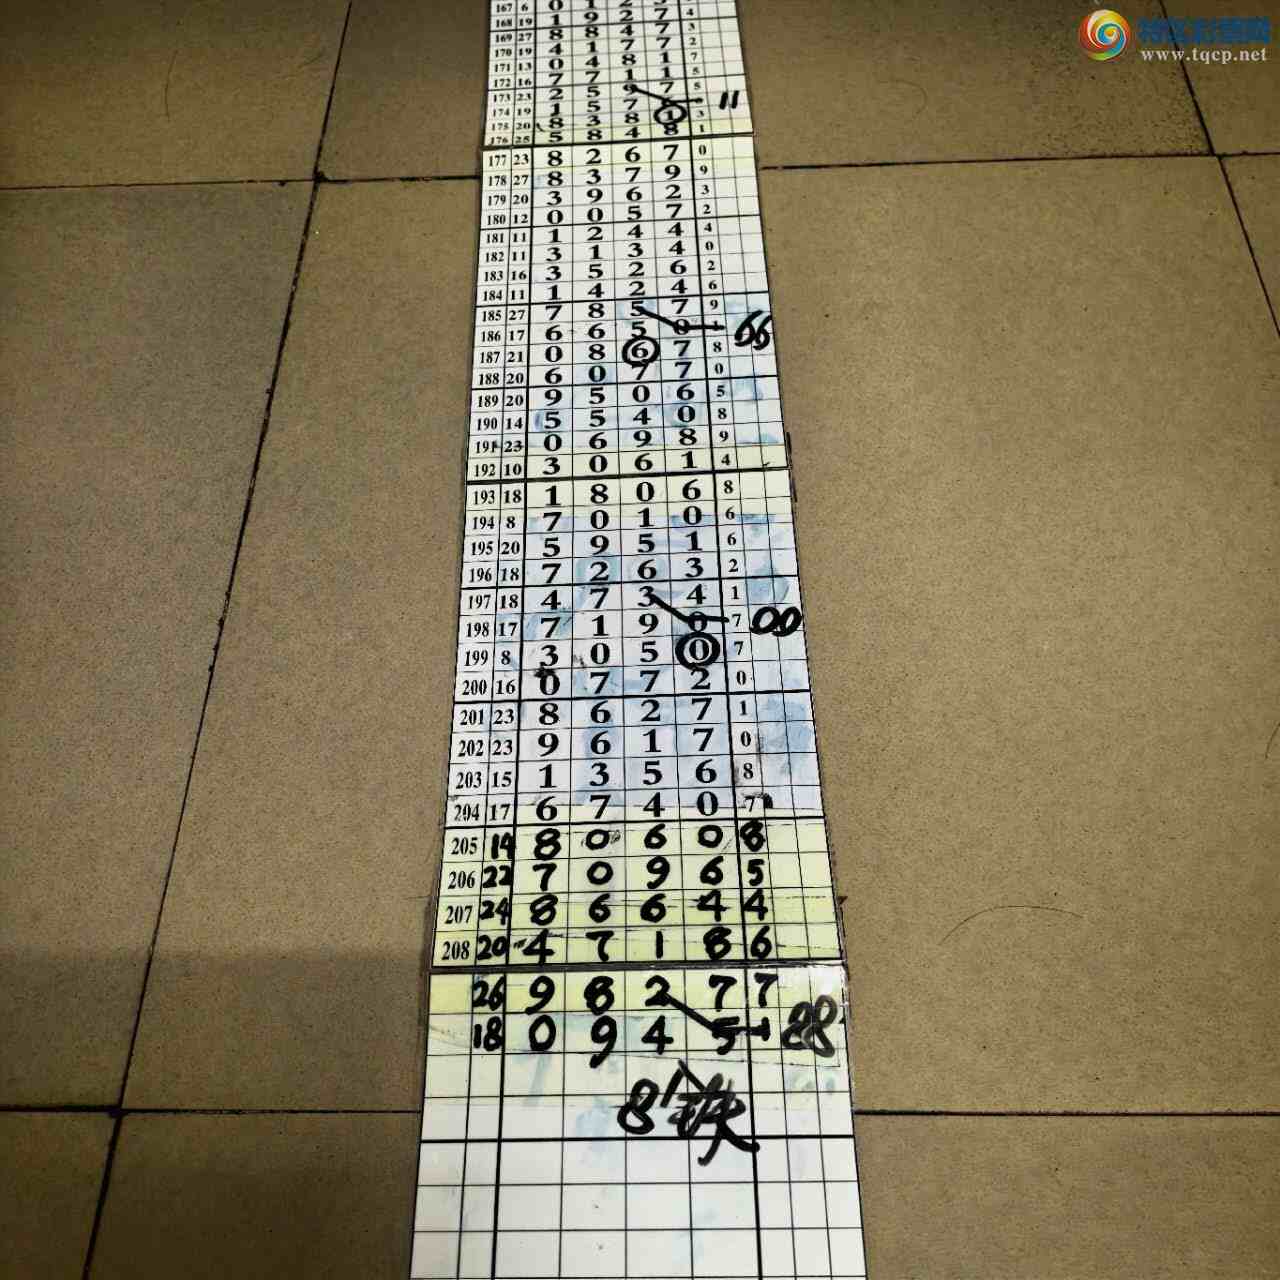 特区彩票网
www.tqcp.net
167 6 0 1 2 3
168 19 1 9 2 7 4
169 27 8 8 4 7 3
170 19 4 1 7 7 2
171 13 0 4 8 1 7
172 16 7 7 1 1 5
173 23 2 5 9 7 5
11
174 19 1 5 7 3
175 20 8 3 8 1
176 25 5 8 4 8 1
177 23 8 2 6 7 0
178 27 8 3 7 9 9
179 20 3 9 6 2 3
180 12 0 0 5 7 2
181 11 1 2 4 4 4
182 11 3 1 3 4 0
183 16 3 5 2 6 2
184 11 1 4 2 4 6
185 27 7 8 5 7 9
186 17 6 6 5 0 1 66
187 21 0 8 6 7 8
188 20 6 0 7 7 0
189 20 9 5 0 6 5
190 14 5 5 4 0 8
191 23 0 6 9 8 9
192 10 3 0 6 1 4
193 18 1 8 0 6 8
194 8 7 0 1 0 6
195 20 5 9 5 1 6
196 18 7 2 6 3 2
197 18 4 7 3 4 1
198 17 7 1 9 0 7 00
199 8 3 0 5 0 7
200 16 0 7 7 2 0
201 23 8 6 2 7 1
202 23 9 6 1 7 0
203 15 1 3 5 6 8
204 17 6 7 4 0 7
205 14 8 0 6 0 8
206 22 7 0 9 6 5
207 24 8 6 6 4 4
208 20 4 7 1 8 6
26 9 8 2 7 7
18 0 9 4 5 1 88
8铁